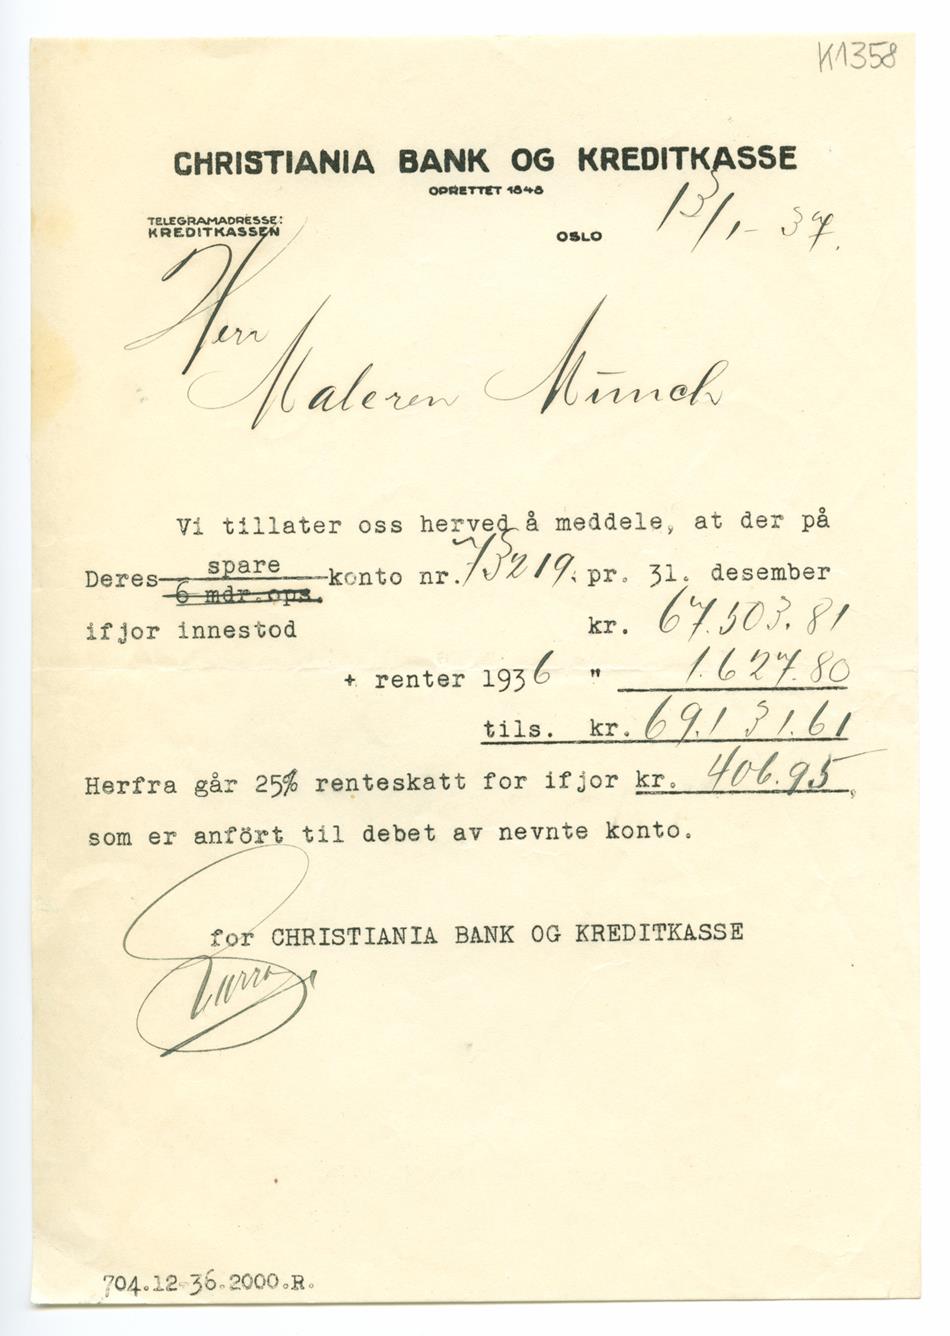 K1358
CHRISTIANIA BANK OG KREDITKASSE
OPRETTET 1848
TELEGRAMADRESSE:
KREDITKASSEN
OSLO 13/1- 37.
Herr
Maleren Munch
Vi tillater oss herved å meddele, at der på
spare
Deres konto nr. 73219. pr. 31. desember
6 mdr.ops.
ifjor innestod kr. 67.503.81
+ renter 1936 " 1.627.80
tils. kr. 69.131.61
Herfra går 25% renteskatt for ifjor kr. 406.95,
som er anfört til debet av nevnte konto.
for CHRISTIANIA BANK OG KREDITKASSE
704.12-36.2000.R.